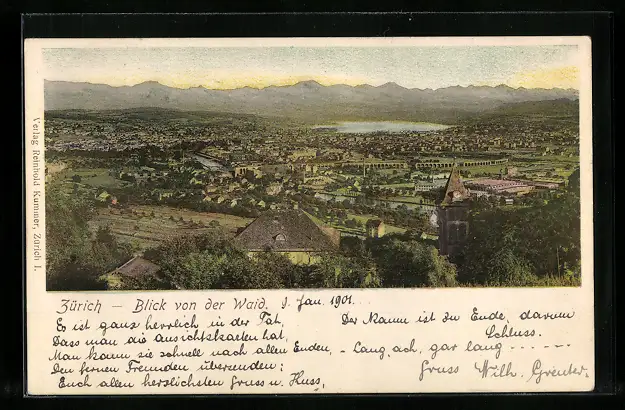 Verlag Reinhold Kummer, Zürich I.
Zürich – Blick von der Waid.
9. Jan. 1901.
Es ist ganz herrlich in der Tat,
Dass man die Ansichtskarten hat,
Man kann sie schnell nach allen Enden,
Den fernen Freunden übersenden:
Euch allen herzlichsten Gruss u. Kuss,
Der Raum ist zu Ende, darum
Schluss.
– Lang, ach, gar lang
Gruss Wilh.